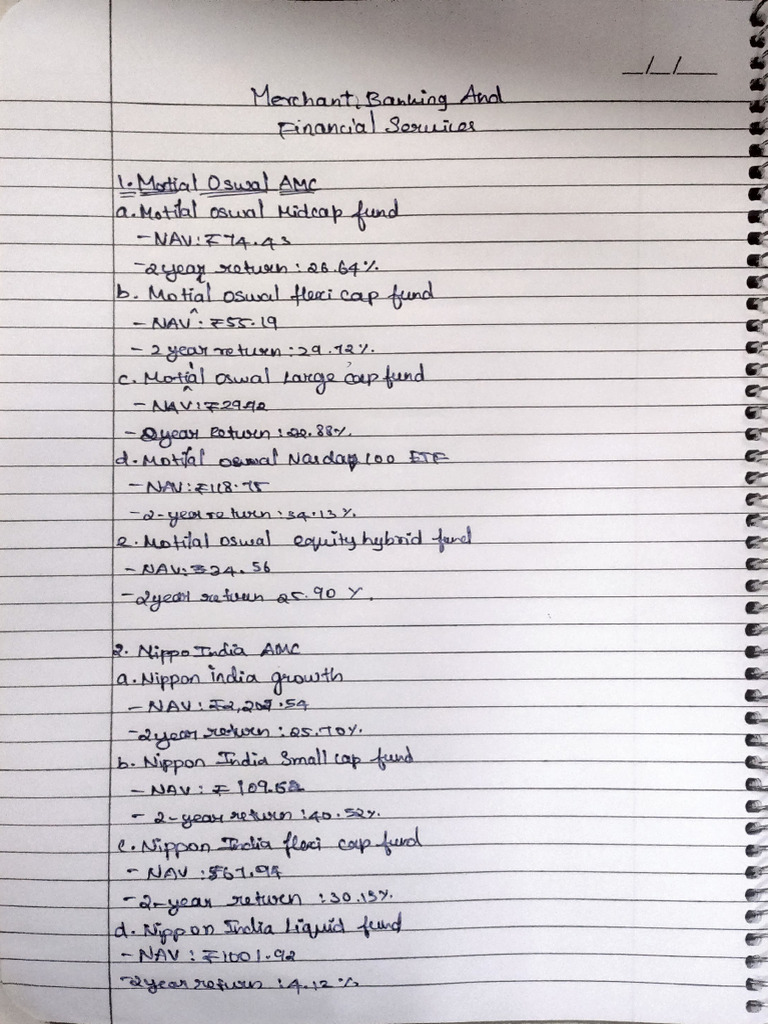 __/__/____
Merchant, Banking And
Financial Services
1. Motial Oswal AMC
a. Motilal oswal Midcap fund
- NAV: ₹74.43
- 2 year return : 26.64%
b. Motial oswal flexi cap fund
- NAV: ₹55.19
- 2 year return : 29.72%.
c. Motial oswal Large cap fund
- NAV: ₹29.42
- 2 year Return : 22.88%.
d. Motilal oswal Nasdaq 100 ETF
- NAV: ₹118.75
- 2-year return : 34.13%.
e. Motilal oswal equity hybrid fund
- NAV: ₹24.56
- 2 year return 25.90 %.
2. Nippo India AMC
a. Nippon india growth
- NAV: ₹2,207.54
- 2 year return : 25.70%.
b. Nippon India Small cap fund
- NAV: ₹109.52
- 2-year return : 40.52%.
c. Nippon India flexi cap fund
- NAV : ₹67.94
- 2-year return : 30.13%.
d. Nippon India Liquid fund
- NAV: ₹1001.92
- 2 year return : 4.12%